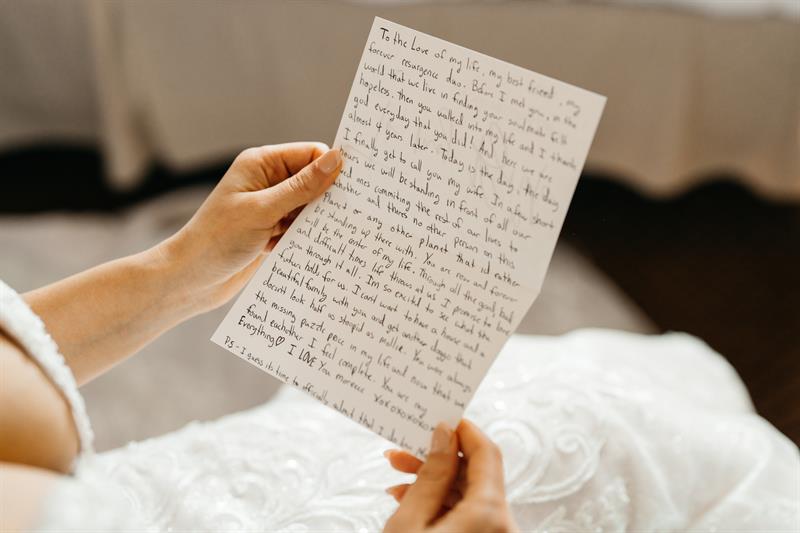 To the Love of my life, my best friend, my
forever resurgence duo. Before I met you, in the
world that we live in finding your soulmate felt
hopeless, then you walked into my life and I thank
god everyday that you did! And here we are
almost 4 years later. Today is the day, the day
I finally get to call you my wife. In a few short
hours we will be standing in front of all our
loved ones commiting the rest of our lives to
eachother and theres no other person on this
planet or any other planet that id rather
be standing up there with. You are now and forever
will be the center of my life. Through all the good, bad
and difficult times life throws at us I promise to love
you through it all. Im so excited to see what the
future holds for us. I cant wait to have a house and a
beautiful family with you and get another doggo that
doesn't look half as stupid as mollie. You were always
the missing puzzle peice in my life and now that we
found eachother I feel complete. You are my
Everything♡ I LOVE You moreeee xoxoxoxoxo
PS - I guess its time to officially admit that I do love